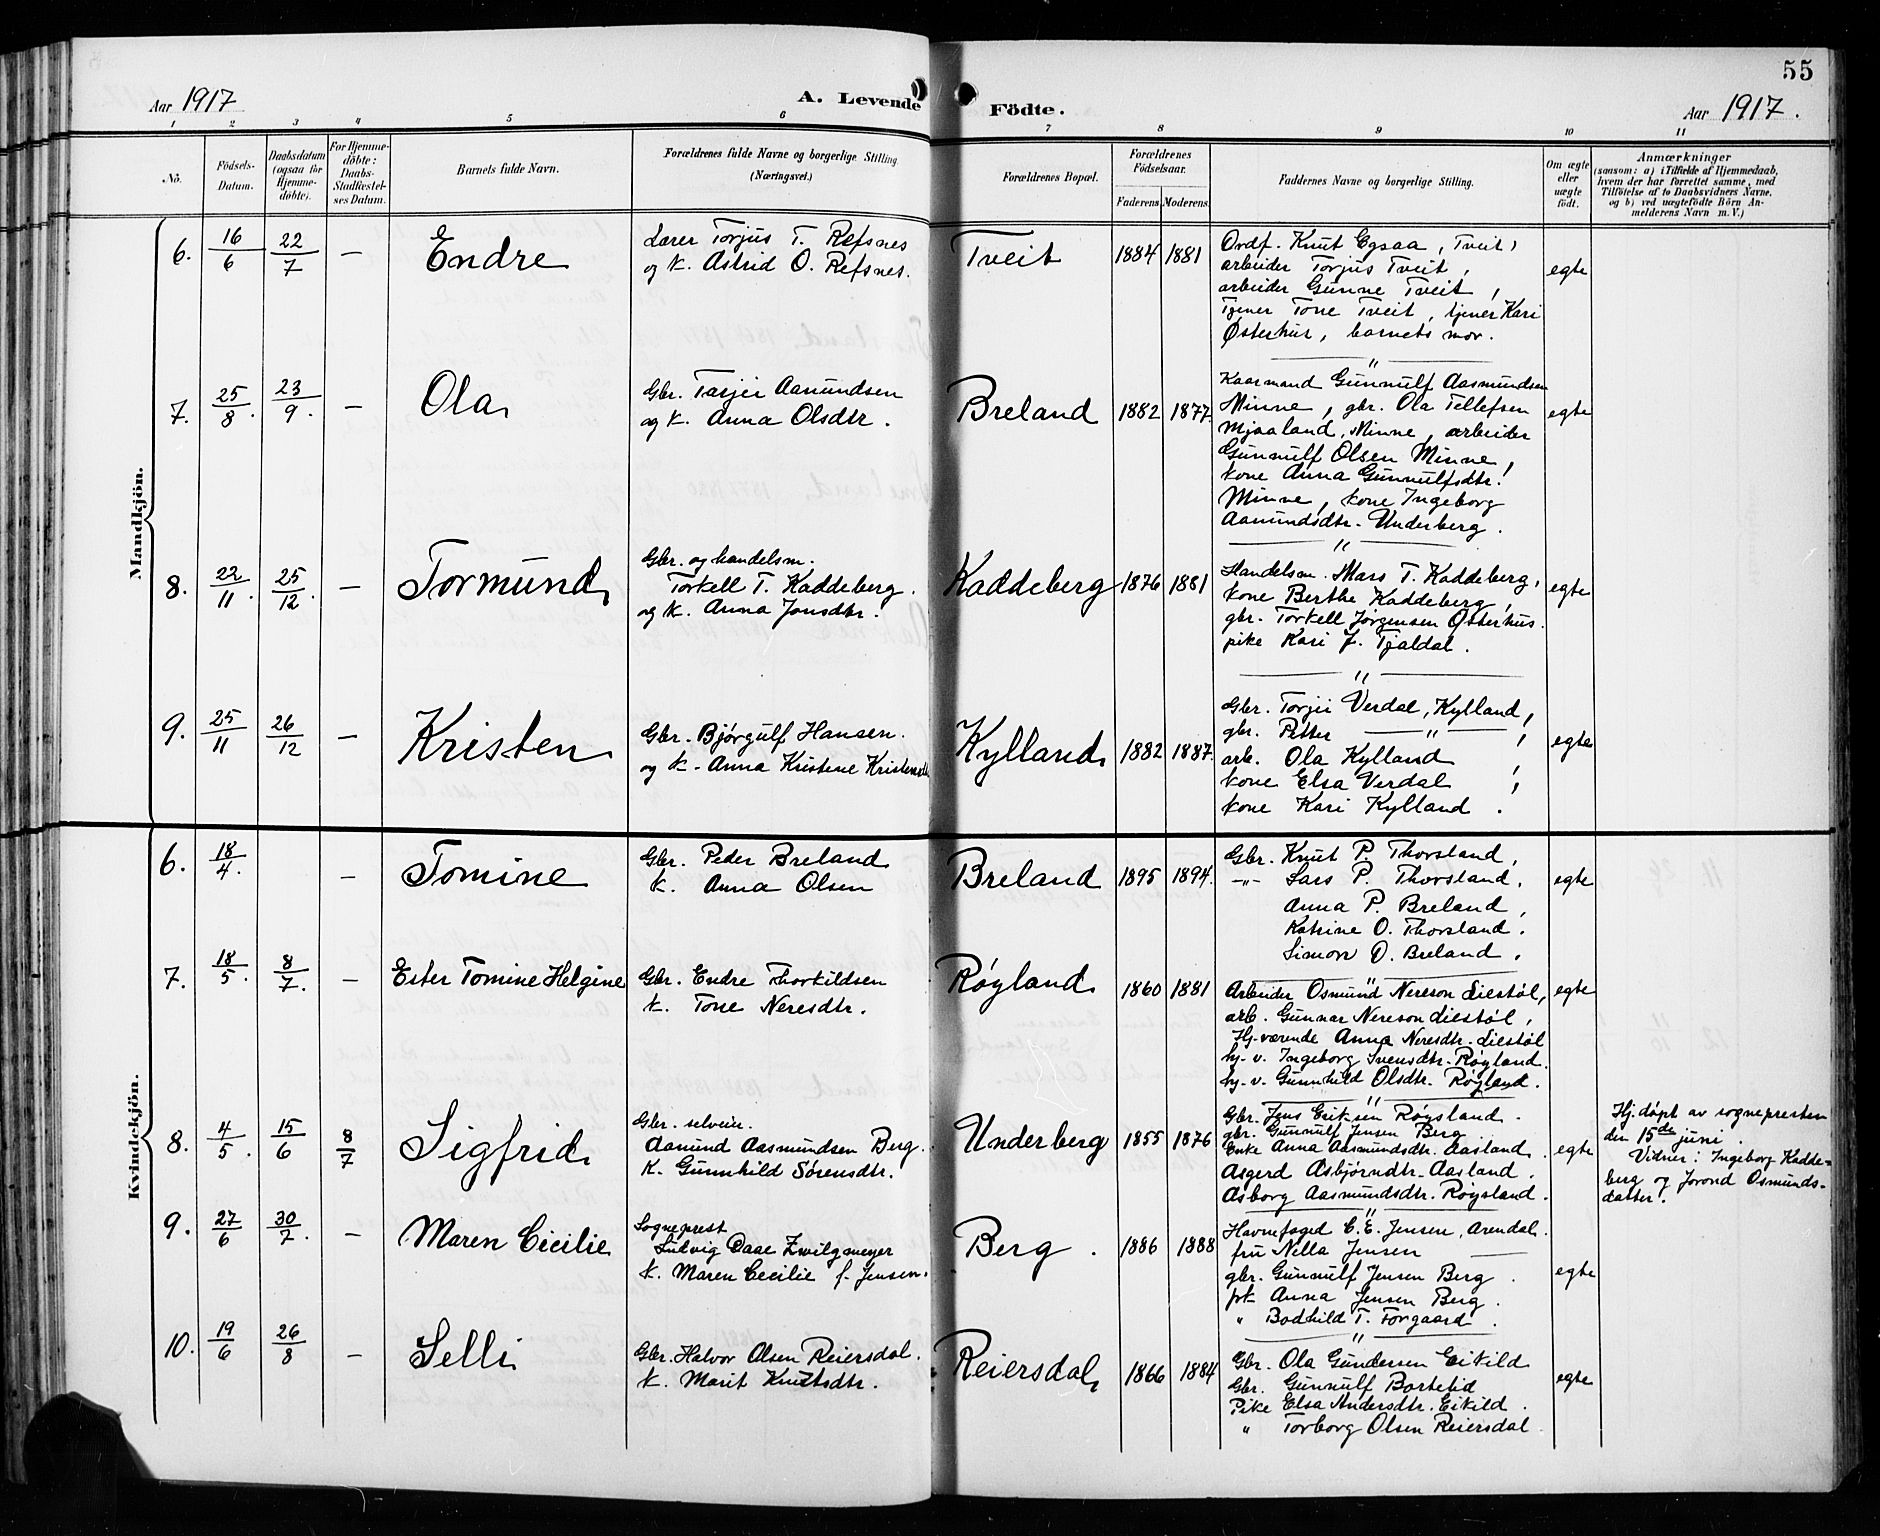 55
Aar 1917
A. Levende Födte.
Aar 1917.
1 2 3 4 5 6 7 8 9 10 11
No.
Födsels-Datum.
Daabsdatum (ogsaa for Hjemme-döbte).
For Hjemme-döbte: Daabs-Stadfæstel-ses Datum.
Barnets fulde Navn.
Forældrenes fulde Navne og borgerlige Stilling (Næringsvei.)
Forældrenes Bopæl.
Forældrenes Födselsaar.
Faderens Moderens.
Faddernes Navne og borgerlige Stilling.
Om ægte eller uægte födt.
Anmærkninger
(saasom: a) i Tilfælde af Hjemmedaab, hvem der har forrettet samme, med Tilföielse af to Daabsvidners Navne, og b) ved uægtefödte Börn An-melderens Navn m. V.)
Mandkjön.
6. 16/6 22/7 — Endre
Lærer Torjus T. Refsnes
og k. Astrid O. Refsnes.
Tveit 1884 1881
Ordf. Knut Egsaa, Tveit,
arbeider Torjus Tveit,
arbeider Gunne Tveit,
Tjener Tone Tveit, tjener Kari
Østerhus, barnets mor.
egte
7. 25/8. 23/9. — Ola
Gbr. Tarjei Aanundsen
og k. Anna Olsdtr.
Breland 1882 1877.
Kaarmand Gunnulf Aasmundsen
Minne, gbr. Ola Tellefsen
Mjaaland, Minne, arbeider
Gunnulf Olsen Minne,
kone Anna Gunnulfsdtr.
Minne, kone Ingeborg
Aanundsdtr. Underberg.
egte
8. 22/11. 25/12. — Tormund
Gbr. og handelsm.
Torkell T. Kaddeberg.
og k. Anna Jonsdtr.
Kaddeberg 1876 1881
Handelsm. Mars T. Kaddeberg,
kone Berthe Kaddeberg,
gbr. Torkell Jörgensen Østerhus.
pike Kari J. Tjaldal.
egte
9. 25/11 26/12 — Kristen
Gbr. Bjørgulf Hansen.
og k. Anna Kristine Kristensdtr
Kylland 1882 1887.
Gbr. Torjei Verdal, Kylland,
gbr. Petter — " — ,
arb. Ola Kylland ,
kone Elsa Verdal ,
kone Kari Kylland .
egte
Kvindekjön.
6. 18/4. — Tomine
Gbr. Peder Breland
k. Anna Olsen
Breland 1895 1894.
Gbr. Knut P. Thorsland,
-"- Lars P. Thorsland,
Anna P. Breland,
Katrine O. Thorsland.
Simon O. Breland.
egte
7. 18/5. 8/7. — Ester Tomine Helgine
Gbr. Endre Thorkildsen
k. Tone Neresdtr.
Røyland 1860 1881
Arbeider Osmund Nereson Liestøl,
arb. Gunnar Nereson Liestøl,
Hj.-værende Anna Neresdtr. Liestøl
hj.-v. Ingeborg Svensdtr. Røyland.
hj.-v. Gunnhild Olsdtr. Røyland.
egte
8. 4/5. 15/6 8/7 Sigfrid
Gbr. selveier.
Aanund Aasmundsen Berg.
K. Gunnhild Sörensdtr.
Underberg 1855 1876
Gbr. Jens Eriksen Røysland.
gbr. Gunnulf Jensen Berg
Enke Anna Aasmundsdtr. Aasland.
Asgerd Asbjørndtr. Aasland.
Asborg Aasmundsdtr. Røysland.
egte
Hj. døpt av sognepresten
den 15de juni.
Vidner: Ingeborg Kadde=
berg og Jorond Osmunds-
datter.
9. 27/6 30/7. — Maren Cecilie
Sogneprest
Ludvig Daae Zwilgmeyer
k. Maren Cecilie f. Jensen.
Berg. 1886 1888
Havnefoged C. E. Jensen, Arendal.
fru Nella Jensen —
gbr. Gunnulf Jensen Berg.
pk Anna Jensen Berg.
" Bodhild T. Forgaard.
egte
10. 19/6 26/8 — Selli
Gbr. Halvor Olsen Reiersdal.
k. Marit Knutsdtr.
Reiersdal 1866 1884
Gbr. Ola Gundersen Eikild
Gbr. Gunnulf Bortelid
Pike Elsa Andersdtr. Eikild.
" Torborg Olsen Reiersdal.
egte